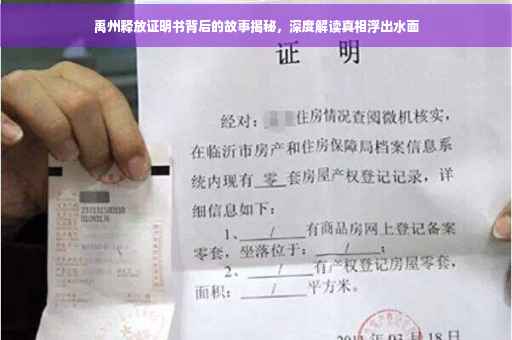 禹州释放证明书背后的故事揭秘，深度解读真相浮出水面
证 明
经对：住房情况查阅微机核实，
在临沂市房产和住房保障局档案信息系
统内现有 零 套房屋产权登记记录，详
细信息如下：
1、 / 有商品房网上登记备案
零套，坐落位于： / ；
2、 / 有产权登记房屋零套，
面积： / 平方米。
03月18日